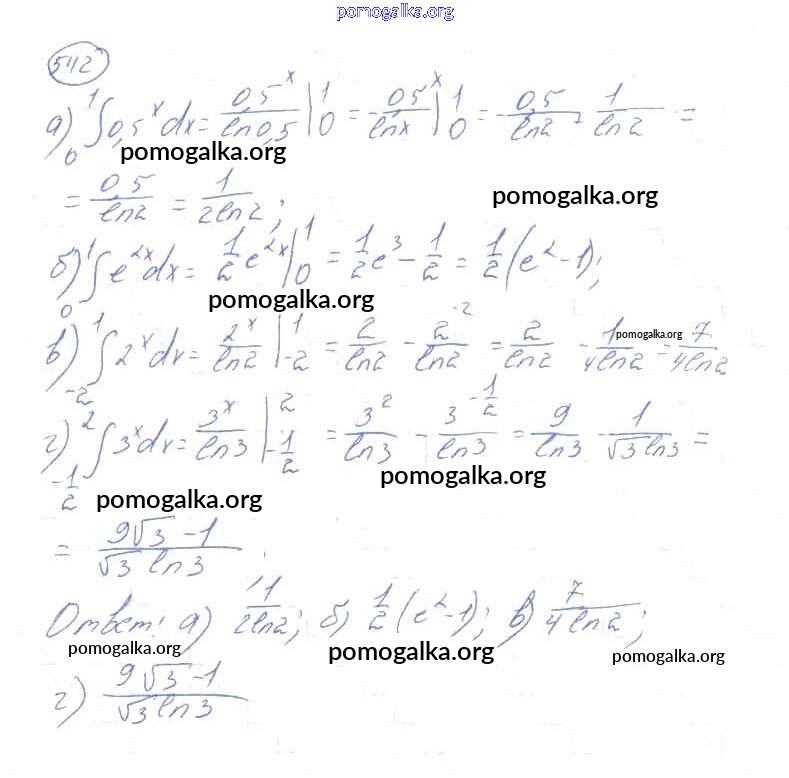 pomogalka.org
542
а) ∫₀¹ 0,5ˣ dx = 0,5ˣ/ln 0,5 |₀¹ = - 0,5ˣ/ln x |₀¹ = - 0,5/ln2 + 1/ln2 =
pomogalka.org
= 0,5/ln2 = 1/2ln2;
pomogalka.org
б) ∫₀¹ e²ˣ dx = 1/2 e²ˣ |₀¹ = 1/2 e³ - 1/2 = 1/2 (e² - 1);
pomogalka.org
в) ∫₋₂¹ 2ˣ dx = 2ˣ/ln2 |₋₂¹ = 2/ln2 - 2⁻²/ln2 = 2/ln2 - 1/4ln2 = 7/4ln2
pomogalka.org
г) ∫_{-1/2}^{2} 3ˣ dx = 3ˣ/ln3 |_{-1/2}^{2} = 3²/ln3 - 3^{-1/2}/ln3 = 9/ln3 - 1/√3 ln3 =
pomogalka.org
pomogalka.org
= 9√3 - 1/√3 ln3.
Ответ: а) 1/2ln2; б) 1/2 (e² - 1); в) 7/4ln2;
pomogalka.org
pomogalka.org
pomogalka.org
г) 9√3 - 1/√3 ln3